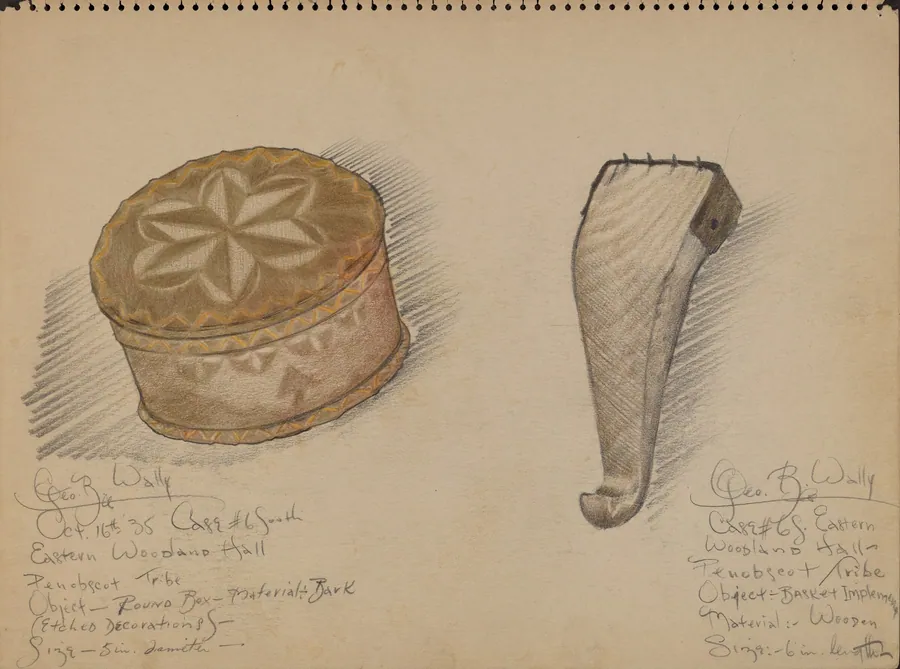 Geo. B. Wally
Oct. 16th 35 Case #6 South
Eastern Woodland Hall
Penobscot Tribe
Object — Round Box — Material:- Bark
(Etched Decorations) —
Size — 5 in. diameter —
Geo. B. Wally
Case #6 S. Eastern
Woodland Hall —
Penobscot Tribe
Object - Basket Implement
Material :- Wooden
Size :- 6 in. length